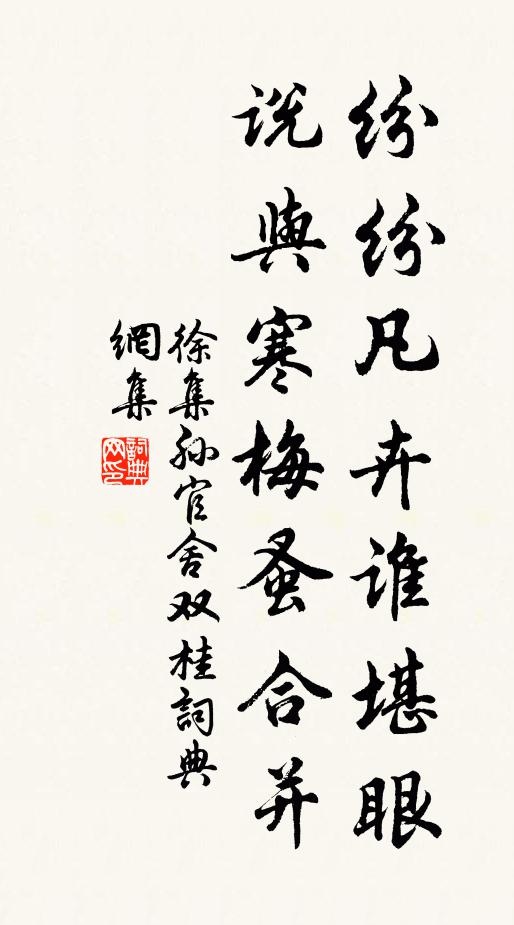 纷纷凡卉谁堪眼
说與寒梅蚤合并
徐集孙官舍双桂詞典
網集
詞典